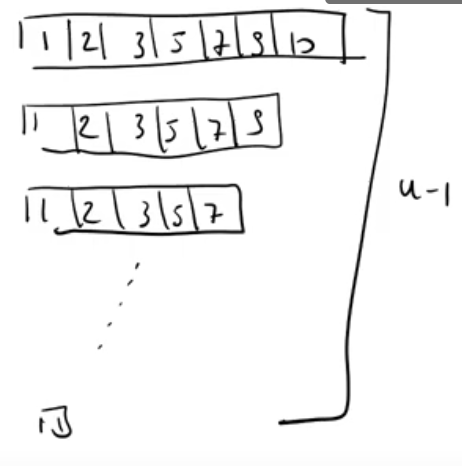 1 2 3 5 7 9 10
1 2 3 5 7 9
1 2 3 5 7
n-1
1